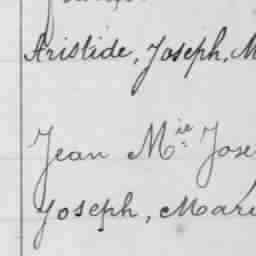 Aristide, Joseph, M
Jean M^ie Jose
Joseph, Mari